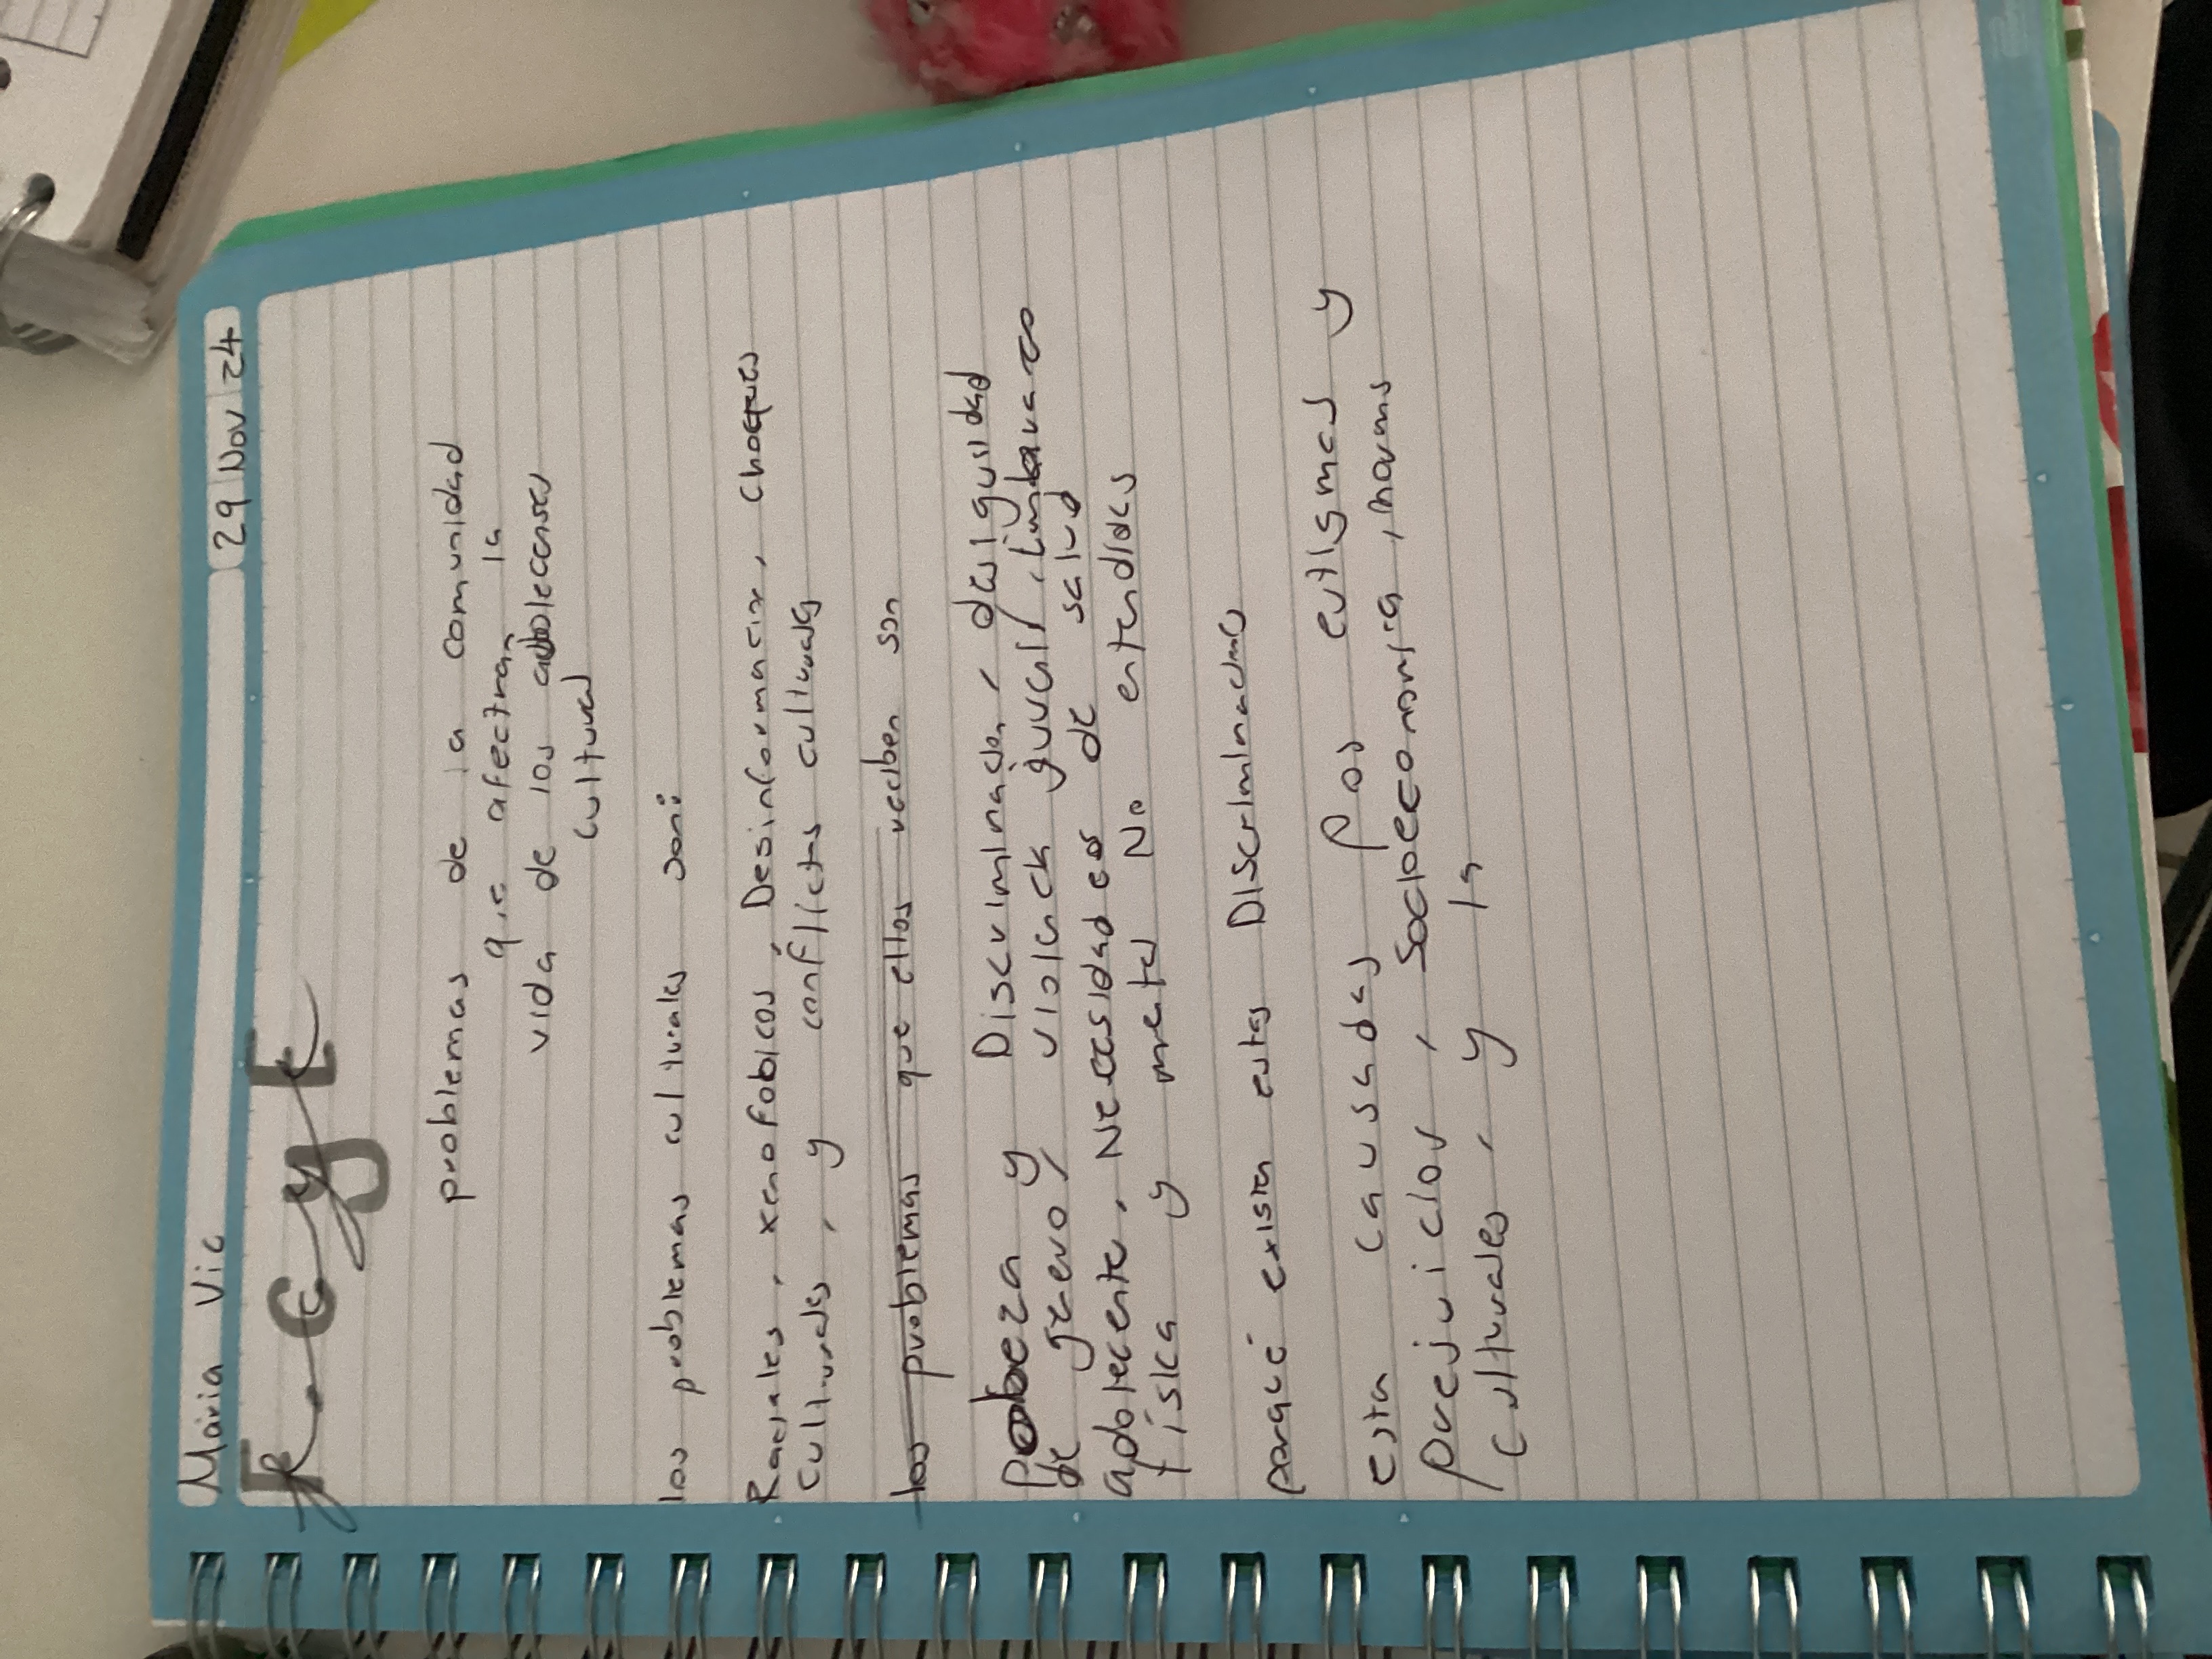 María Vic
29 Nov 24
F. C y E
problemas de la comunidad
que afectran la
vida de los adolecenses
cultural
los problemas culturales son:
Raciales, xenofobicos, Desinformacion, choques
culturales, y conflictos culturales
los problemas que ellos reciben son
Pobeza y Discriminacion, desigusidad
de genero, violencia guucul,
adolecente, Necesidades de salud
física y mental No entendidas
porqué existen estas Discriminaciones
estan causadas por estigmas y
prejuicios, socioeconomica, normas
culturales, y la